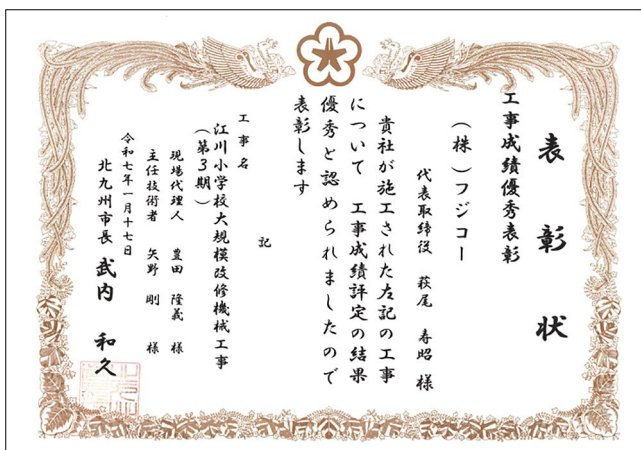 表彰状
工事成績優秀表彰
(株)フジコー
代表取締役 萩尾 寿昭 様
貴社が施工された左記の工事
について 工事成績評定の結果
優秀と認められましたので
表彰します
記
工事名
江川小学校大規模改修機械工事
(第3期)
現場代理人 豊田 隆義 様
主任技術者 矢野 剛 様
令和七年一月十七日
北九州市長 武内 和久